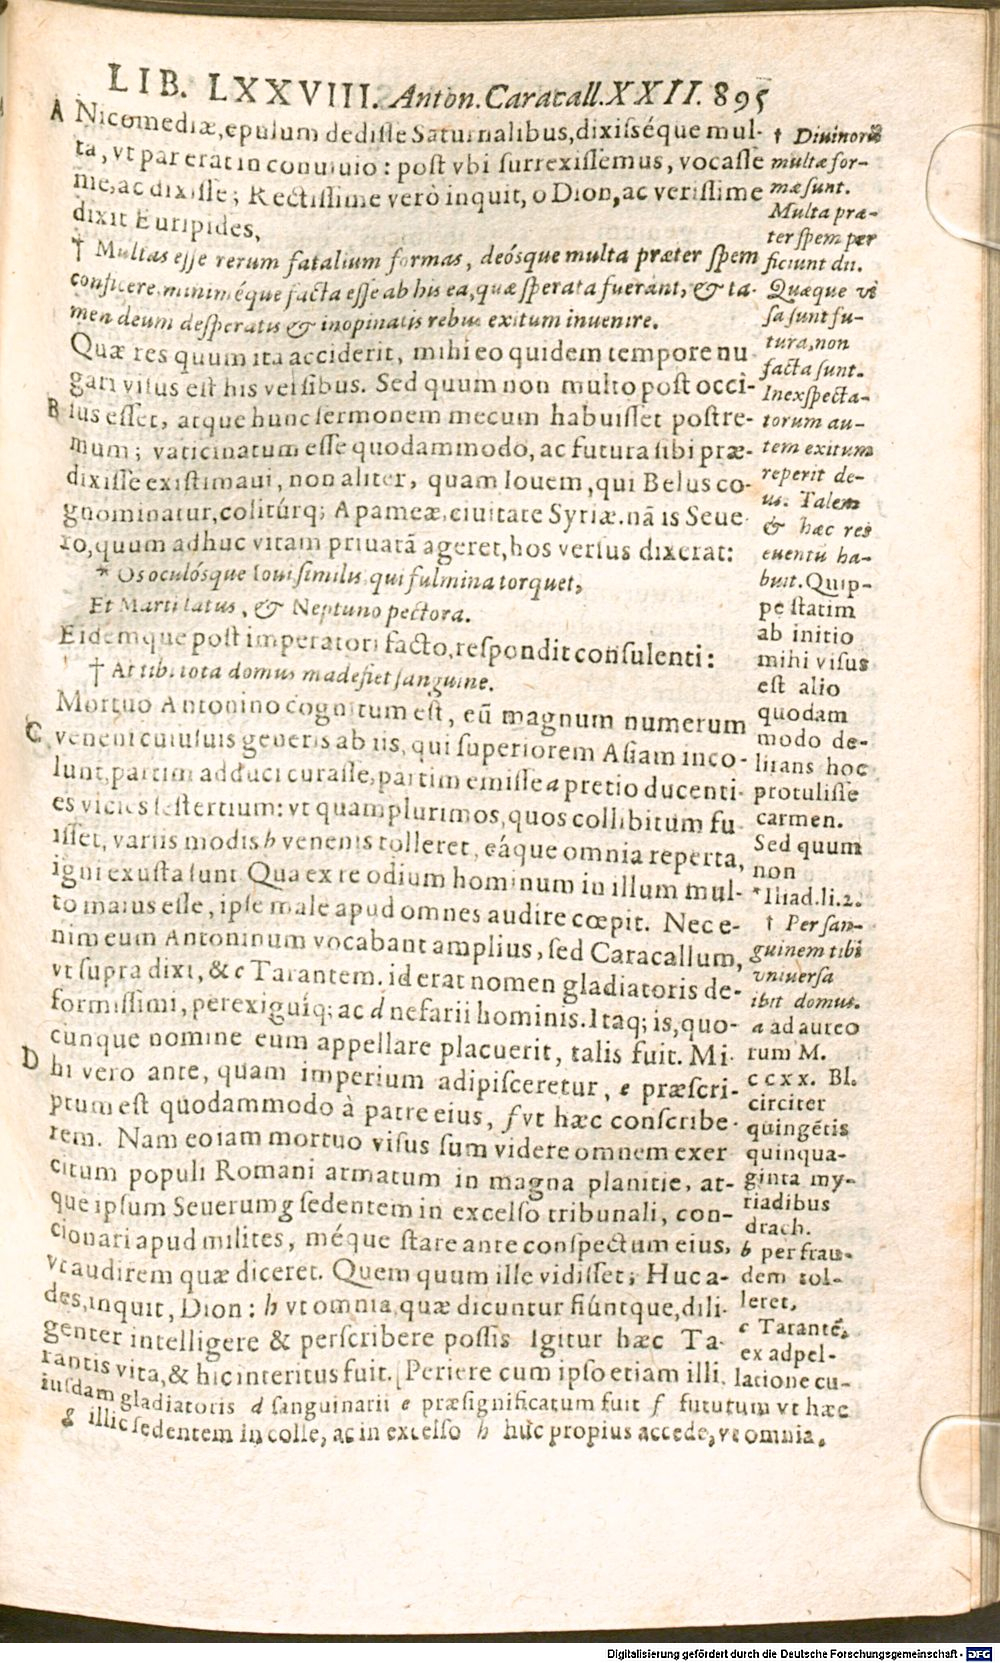 LIB. LXXVIII. Anton. Caracall. XXII. 895
A Nicomediæ, epulum dedisse Saturnalibus, dixisséque mul-
ta, vt par erat in conuiuio: post vbi surrexissemus, vocasse
me, ac dixisse; Rectissime verò inquit, o Dion, ac verissime
dixit Euripides,
† Multas esse rerum fatalium formas, deósque multa præter spem
conficere, miniméque facta esse ab his ea, quæ sperata fuerant, & ta-
men deum desperatis & inopinatis rebus exitum inuenire.
Quæ res quum ita acciderit, mihi eo quidem tempore nu
gari visus est his versibus. Sed quum non multo post occi-
B sus esset, atque hunc sermonem mecum habuisset postre-
mum; vaticinatum esse quodammodo, ac futura sibi præ-
dixisse existimaui, non aliter, quam Iouem, qui Belus co-
gnominatur, colitúrq; Apameæ, ciuitate Syriæ. nã is Seue-
ro, quum adhuc vitam priuatã ageret, hos versus dixerat:
* Os oculósque Ioui similis, qui fulmina torquet,
Et Marti latus, & Neptuno pectora.
Eidemque post imperatori facto, respondit consulenti:
† At tibi tota domus madefiet sanguine.
Mortuo Antonino cognitum est, eũ magnum numerum
C veneni cuiusuis generis ab iis, qui superiorem Asiam inco-
lunt, partim adduci curasse, partim emisse a pretio ducenti-
es vicies sestertium: vt quamplurimos, quos collibitum fu
isset, variis modis b venenis tolleret, eáque omnia reperta,
igni exusta sunt. Qua ex re odium hominum in illum mul-
to maius esse, ipse male apud omnes audire cœpit. Nec e-
nim eum Antoninum vocabant amplius, sed Caracallum,
vt supra dixi, & c Tarantem. id erat nomen gladiatoris de-
formissimi, perexiguíq; ac d nefarii hominis. Itaq; is, quo-
cunque nomine eum appellare placuerit, talis fuit. Mi-
D hi vero ante, quam imperium adipisceretur, e præscri-
ptum est quodammodo à patre eius, f vt hæc conscribe-
rem. Nam eo iam mortuo visus sum videre omnem exer
citum populi Romani armatum in magna planitie, at-
que ipsum Seuerum g sedentem in excelso tribunali, con-
cionari apud milites, méque stare ante conspectum eius,
vt audirem quæ diceret. Quem quum ille vidisset; Huc a-
des, inquit, Dion: h vt omnia, quæ dicuntur fiúntque, dili-
genter intelligere & perscribere possis Igitur hæc Ta-
rantis vita, & hic interitus fuit. [Periere cum ipso etiam illi,
† Diuinorũ
multæ for-
mæ sunt.
Multa præ-
ter spem per
ficiunt dii.
Quæque vi
sa sunt fu-
tura, non
facta sunt.
Inexspecta-
torum au-
tem exitum
reperit de-
us. Talem
& hæc res
euentũ ha-
buit. Quip-
pe statim
ab initio
mihi visus
est alio
quodam
modo de-
lirans hoc
protulisse
carmen.
Sed quum
non
* Iliad. li. 2.
† Per san-
guinem tibi
vniuersa
ibit domus.
a ad aureo
rum M.
ccxx. Bl.
circiter
quingẽtis
quinqua-
ginta my-
riadibus
drach.
b per frau-
dem tol-
leret,
c Tarantẽ,
ex adpel-
latione cu-
iusdam gladiatoris d sanguinarii e præsignificatum fuit f fututum vt hæc
g illic sedentem in colle, ac in excelso h huc propius accede, vt omnia.
Digitalisierung gefördert durch die Deutsche Forschungsgemeinschaft - DFG